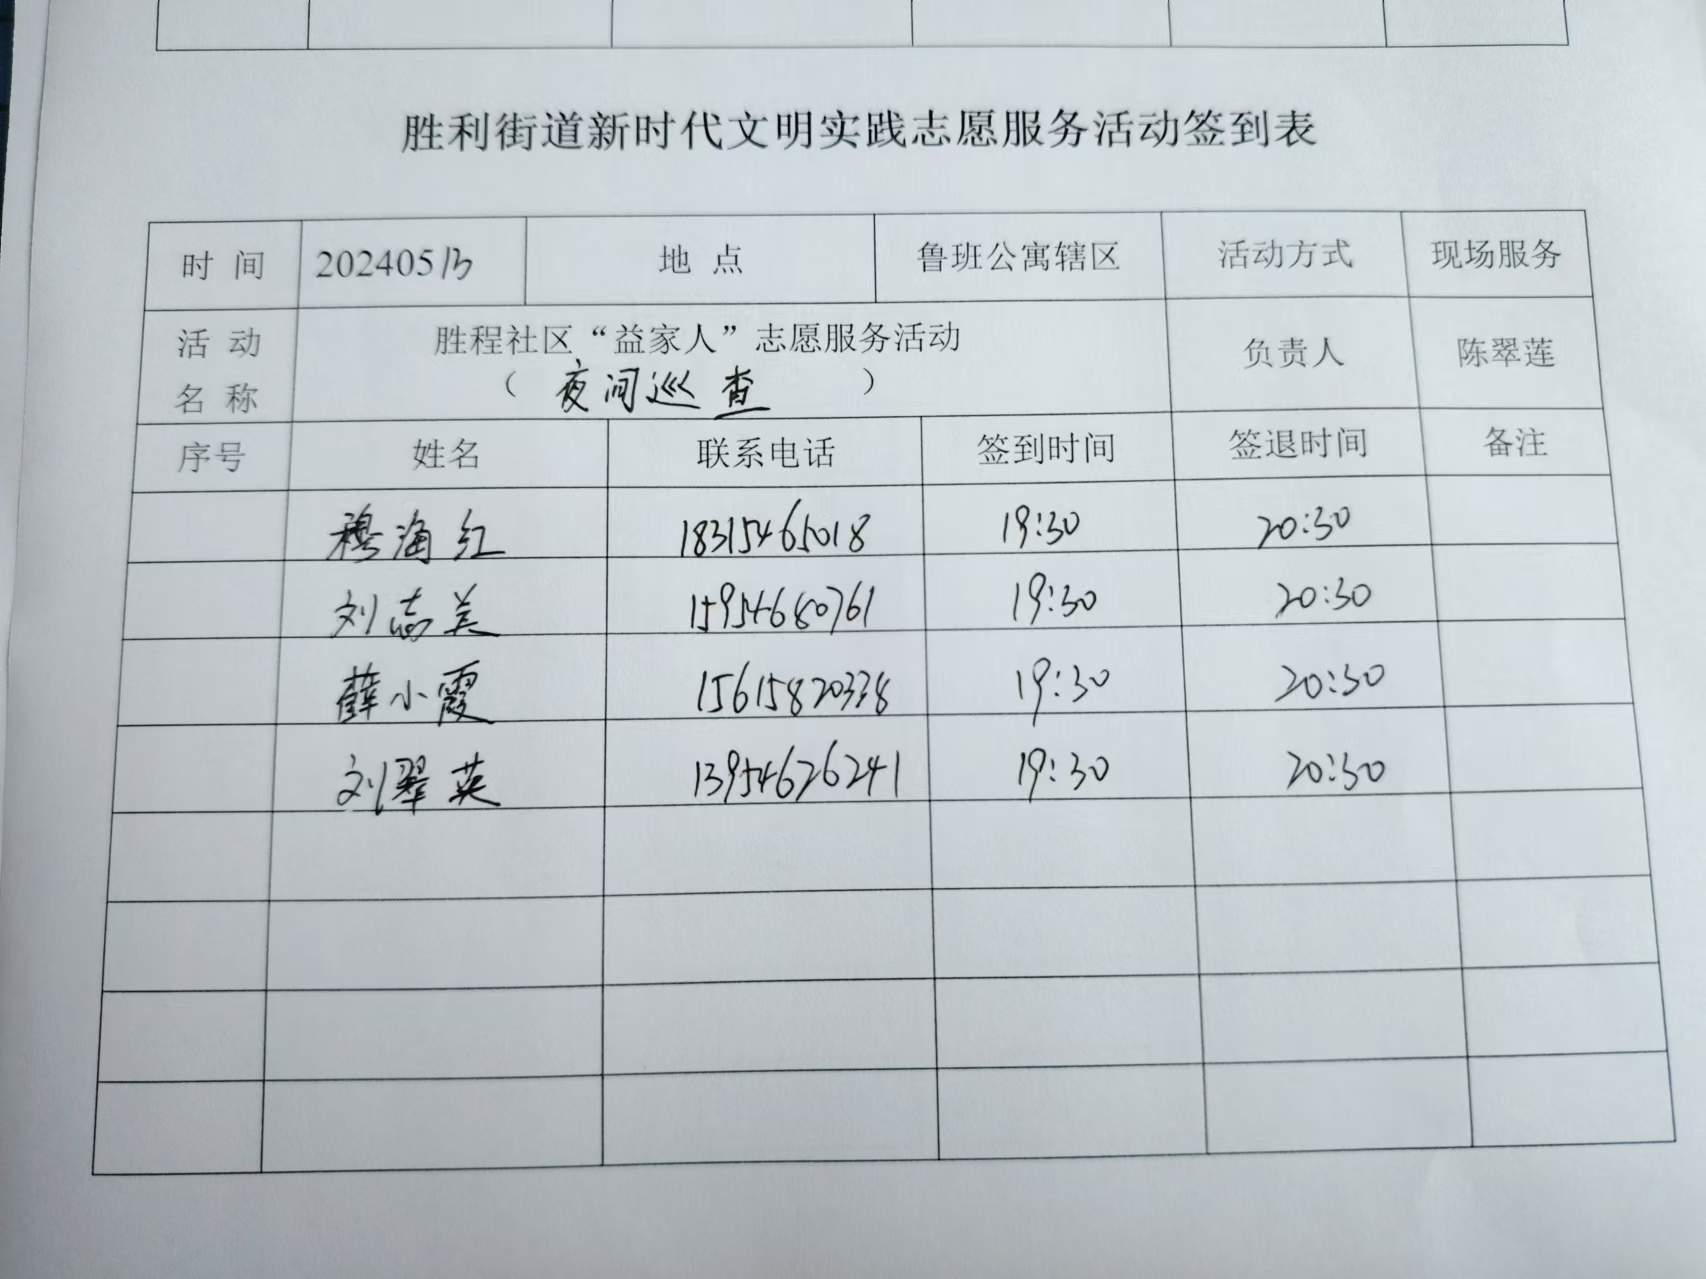 胜利街道新时代文明实践志愿服务活动签到表
时 间 20240513 地 点 鲁班公寓辖区 活动方式 现场服务
活 动 名 称 胜程社区“益家人”志愿服务活动 负责人 陈翠莲
（ 夜间巡查 ）
序号 姓名 联系电话 签到时间 签退时间 备注
穆海红 18315465018 19:30 20:30
刘志美 15954680761 19:30 20:30
薛小霞 15615820338 19:30 20:30
刘翠英 13954626241 19:30 20:30